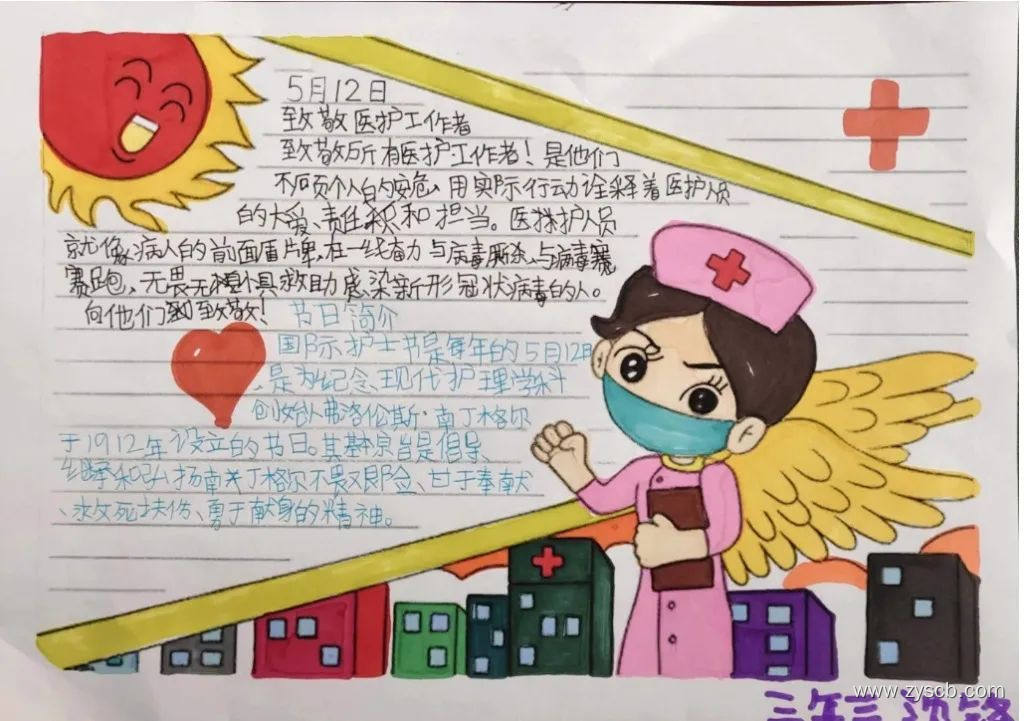 5月12日
致敬医护工作者
致敬所有医护工作者!是他们
不顾个人的安危,用实际行动诠释着医护人员
的大爱、责任积和担当。医护人员
就像病人的前面盾牌,在一线奋力与病毒厮杀,与病毒
赛跑,无畏无惧救助感染新形冠状病毒的人。
向他们致敬!
节日简介
国际护士节是每年的5月12日
,是为纪念现代护理学科
创始人弗洛伦斯·南丁格尔
于1912年设立的节日。其基本宗旨是倡导、
继承和弘扬南丁格尔不畏艰险、甘于奉献
、救死扶伤、勇于献身的精神。
三年三
www.zyscb.com